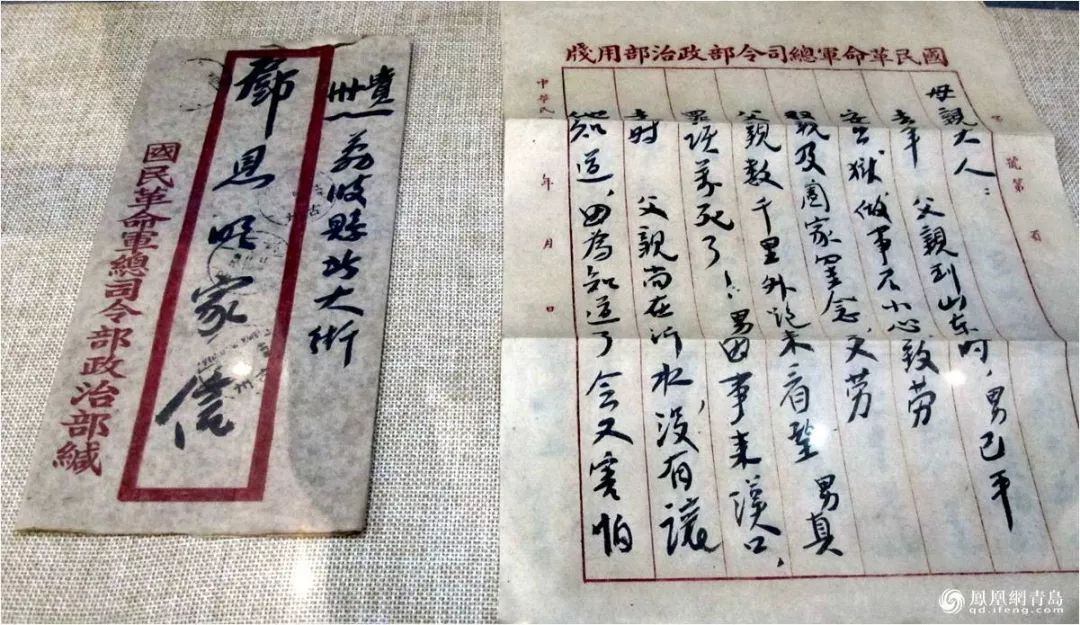 貴州
荔波縣北大街
鄧恩明家信
國民革命軍總司令部政治部緘
國民革命軍總司令部政治部用牋
號第 頁
母親大人：
去年 父親到山東時，男已平
安出獄做事不小心致勞
親及閤家罣念，又勞
父親數千里外跑來看望 男真
罪該萬死了！男因事來漢口，
走時 父親尚在沂水沒有讓
知道，因為知道了會又害怕
中華民 年 月 日
鳳凰網青島
qd.ifeng.com